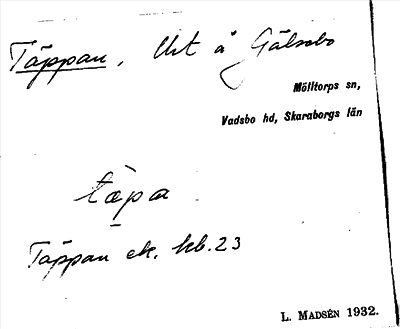 Täppan, lht å Gälsebo
Mölltorps sn,
Vadsbo hd, Skaraborgs län
täpa
Täppan ek. kb. 23
L. MADSÉN 1932.